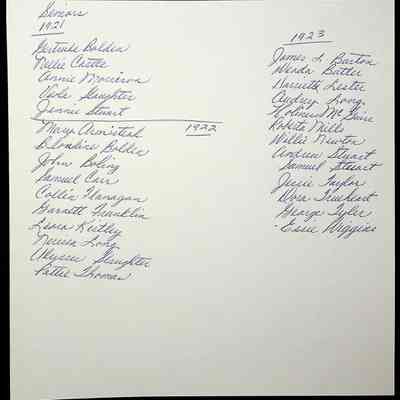 Seniors
1921
Gertrude Bolden
Nellie Cattle
Annie Morrison
Viola Slaughter
Jennie Stuart
Mary Armistead 1922
Blondine Bolden
John Boling
Samuel Carr
Collin Flanagan
Garnett Franklin
Leora Keitley
Nerissa Long
Ulysses Slaughter
Pattie Thomas
1923
James L. Barton
Wenda Butler
Harriette Lester
Audrey Long
McGuire
Roberta Mills
Willie Newton
Andrew Stuart
Samuel Stuart
Jessie Taylor
Dora Trueheart
George Tyler
Essie Wiggins